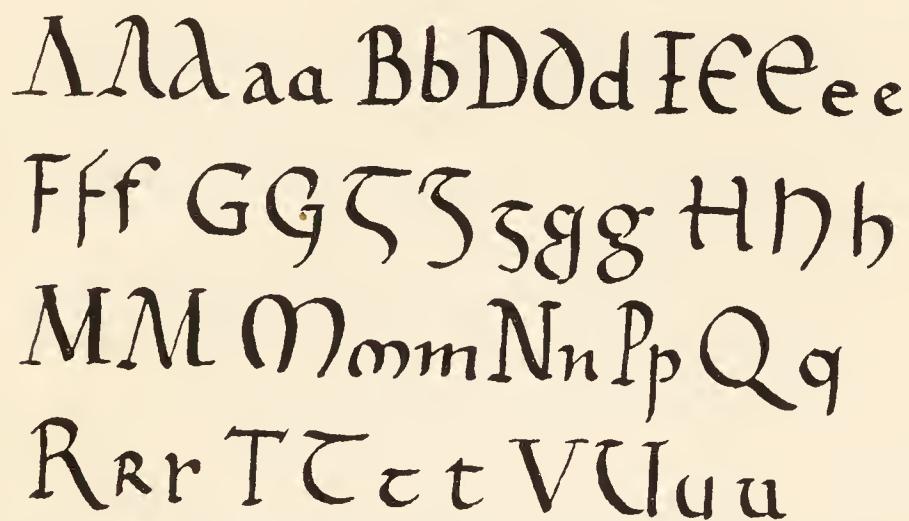 AAAaa BbDDd EEEee
FFf GGGGggg HHh
MMMmm NnPpQq
RRr TTtt VUuu